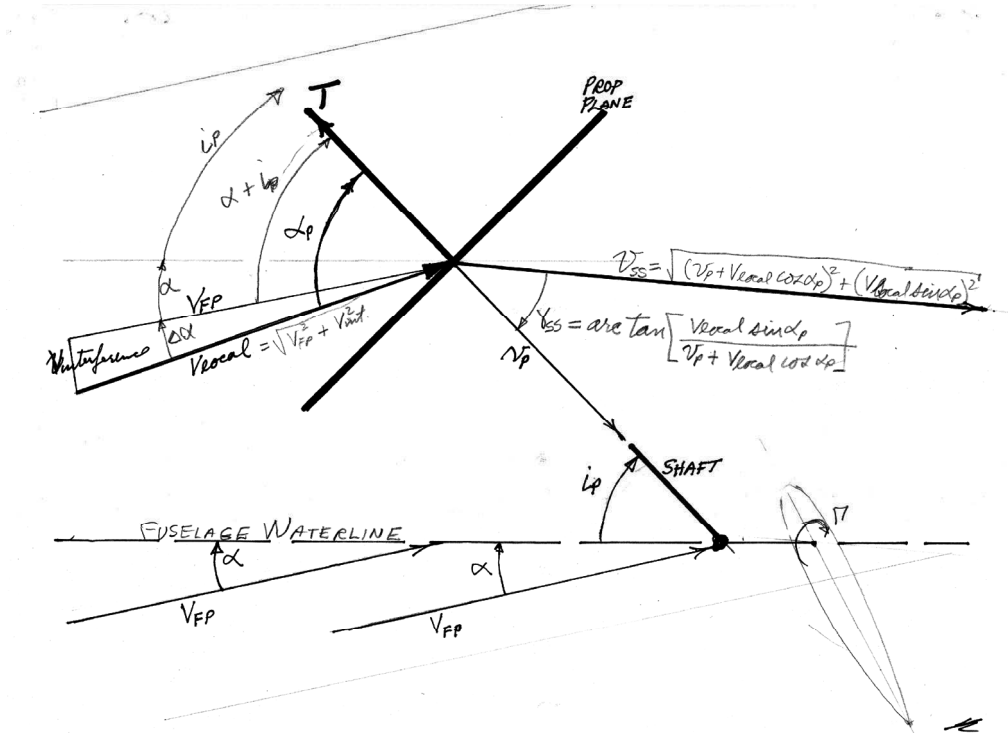 T
PROP
PLANE
iₚ
α + iₚ
αₚ
α
V_FP
Δα
Vinterference
Vlocal = √(V²_FP + V²int.)
𝒱ss = √((𝓋ₚ + Vlocal cos αₚ)² + (Vlocal sin αₚ)²)
γss = arc tan [Vlocal sin αₚ / 𝓋ₚ + Vlocal cos αₚ]
𝓋ₚ
iₚ
SHAFT
FUSELAGE WATERLINE
Γ
α
α
V_FP
V_FP